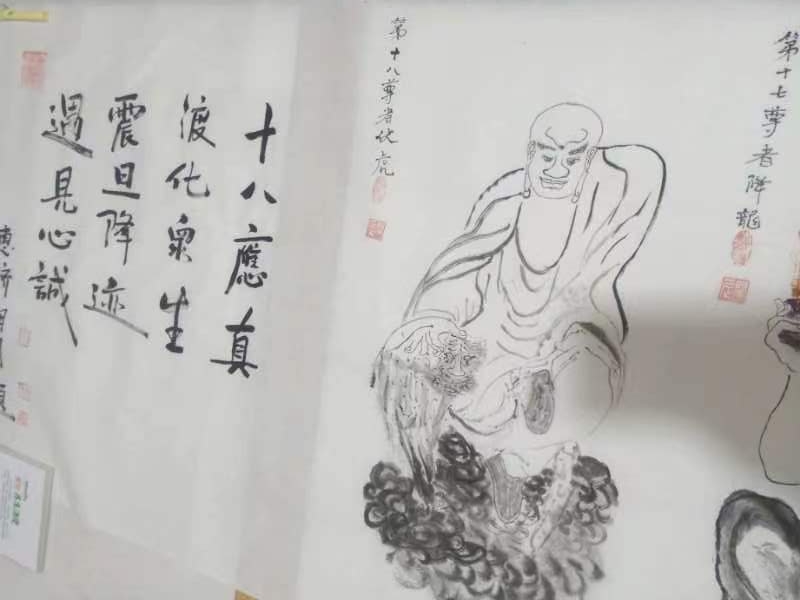 第十七尊者降龍
第十八尊者伏虎
十八應真
渡化衆生
震旦降迹
遇見心誠